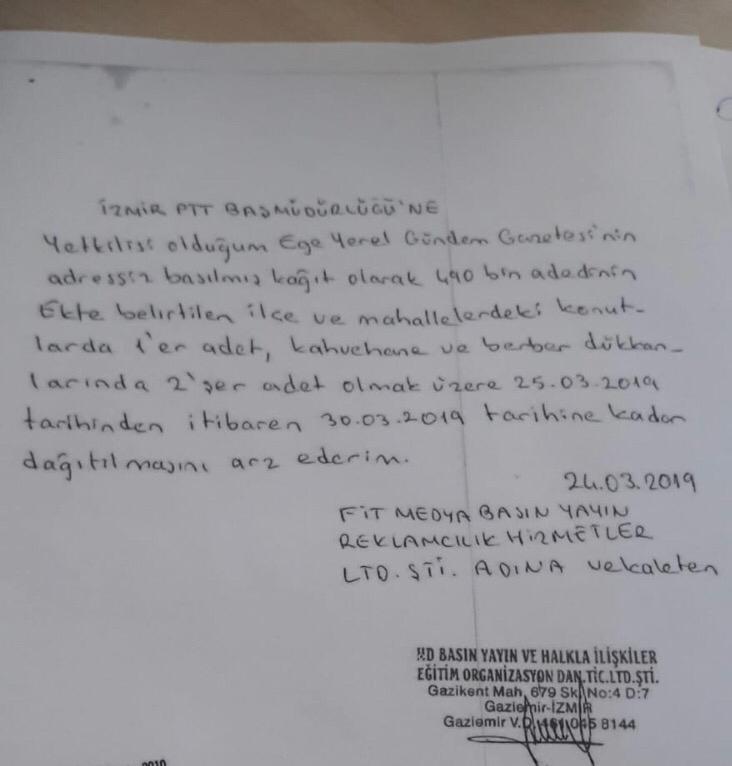 İZMİR PTT BAŞMÜDÜRLÜĞÜ'NE
Yetkilisi olduğum Ege Yerel Gündem Gazetesi'nin
adressiz basılmış kağıt olarak 490 bin adedinin
Ekte belirtilen ilçe ve mahallelerdeki konut-
larda 1'er adet, kahvehane ve berber dükkan-
larında 2'şer adet olmak üzere 25.03.2019
tarihinden itibaren 30.03.2019 tarihine kadar
dağıtılmasını arz ederim.
24.03.2019
FİT MEDYA BASIN YAYIN
REKLAMCILIK HİZMETLER
LTD. ŞTİ. ADINA vekaleten
BASIN YAYIN VE HALKLA İLİŞKİLER
EĞİTİM ORGANİZASYON DAN.TİC.LTD.ŞTİ.
Gazikent Mah. 679 Sk. No:4 D:7
Gaziemir-İZMİR
Gaziemir V.D. 8144